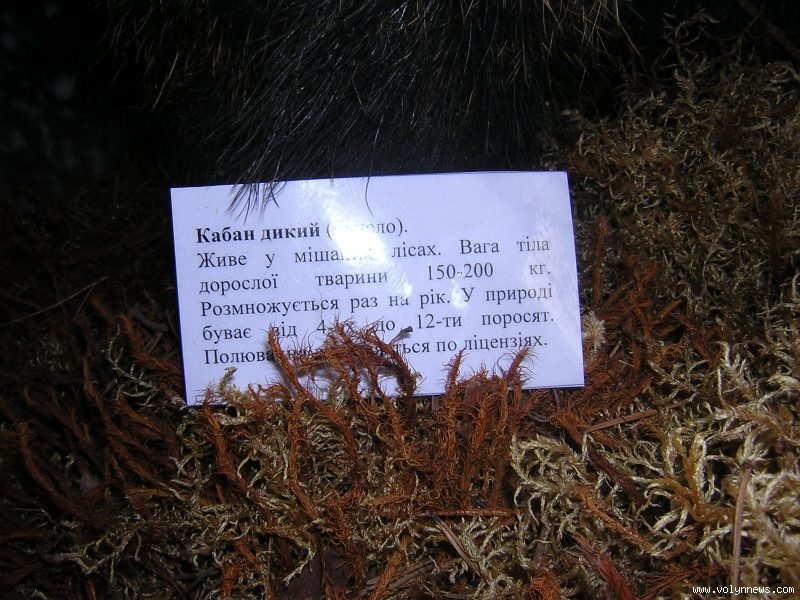 Кабан дикий
Живе у лісах. Вага тіла
дорослої тварини 150-200 кг.
Розмножується раз на рік. У природі
буває від до 12-ти поросят.
по ліцензіях.
www.volynnews.com